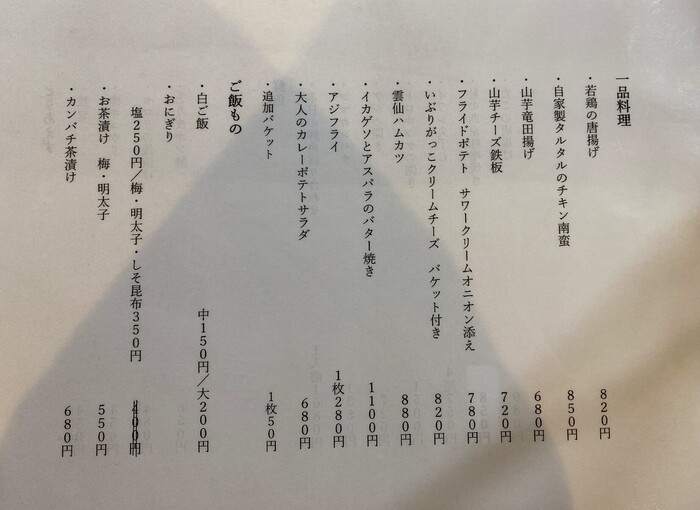 一品料理
・若鶏の唐揚げ 820円
・自家製タルタルのチキン南蛮 850円
・山芋竜田揚げ 680円
・山芋チーズ鉄板 720円
・フライドポテト サワークリームオニオン添え 780円
・いぶりがっこクリームチーズ バケット付き 820円
・雲仙ハムカツ 880円
・イカゲソとアスパラのバター焼き 1100円
・アジフライ 1枚280円
・大人のカレーポテトサラダ 680円
・追加バケット 1枚50円
ご飯もの
・白ご飯 中150円／大200円
・おにぎり
塩250円／梅・明太子・しそ昆布350円 400円
・お茶漬け 梅・明太子 550円
・カンパチ茶漬け 680円